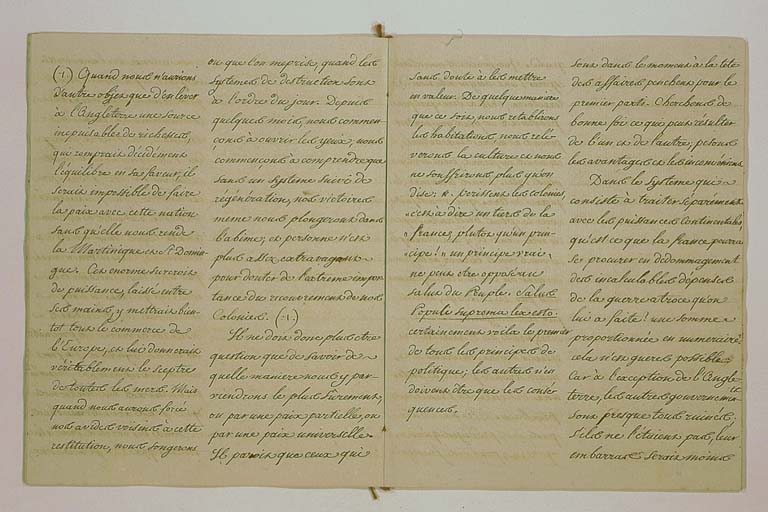 (1) Quand nous n'aurions
d'autre objet que d'enlever
à l'Angleterre une source
inepuisable de richesses,
qui romprait décidément
l'équilibre en sa faveur, il
serait impossible de faire
la paix avec cette nation
sans qu'elle nous rende
la Martinique et St. Domin-
gue. Cet enorme surcroit
de puissance, laissé entre
ses mains, y mettrait bien-
tot tout le commerce de
l'Europe, et lui donnerait
véritablement le sceptre
de toutes les mers. Mais
quand nous aurons forcé
nos avides voisins à cette
restitution, nous songerons
ou que l'on meprise, quand les
systemes de destruction sont
à l'ordre du jour. Depuis
quelques mois, nous commen-
çons à ouvrir les yeux; nous
commençons à comprendre que
sans un systeme suivi de
régénération, nos victoires
meme nous plongeront dans
l'abime; et personne n'est
plus assez extravagant
pour douter de l'extreme impor-
tance du recouvrement de nos
Colonies. (1)
Il ne doit donc plus etre
question que de savoir de
quelle maniere nous y par-
viendrons le plus surement,
ou par une paix partielle, ou
par une paix universelle.
Il paroit que ceux qui
sans doute à les mettre
en valeur. De quelque maniere
que ce soit, nous retablirons
les habitations, nous relé-
verons la culture et nous
ne souffrirons plus qu'on
dise: « périssent les colonies,
« c'est à dire un tiers de la
« france, plutot qu'un prin-
cipe! » un principe vrai
ne peut etre opposé au
salut du Peuple. Salus
Populi suprema lex esto.
certainement voila le premier
de tous les principes de
politique; les autres n'en
doivent être que les consé-
quences.
sont dans le moment à la tete
des affaires penchent pour le
premier parti. Cherchons de
bonne foi ce que peut résulter
de l'un et de l'autre; pesons
les avantages et les inconveniens.
Dans le systeme qui
consiste à traiter séparément
avec les puissances continentales,
qu'est ce que la france pourra
se procurer en dédommagement
des incalculables dépenses
de la guerre atroce qu'on
lui a faite? une somme
proportionnée en numeraire?
cela n'est gueres possible
Car à l'exception de l'Angle-
terre, les autres gouvernemens
sont presque tous ruinés;
s'ils ne l'étaient pas, leur
embarras serait moins